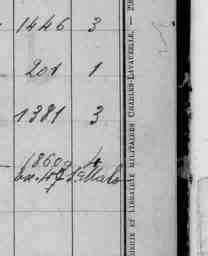 1446 3
201 1
1381 3
1860
St Malo
ERIE ET LIBRAIRIE MILITAIRES CHARLES-LAVAUZELLE. — 29